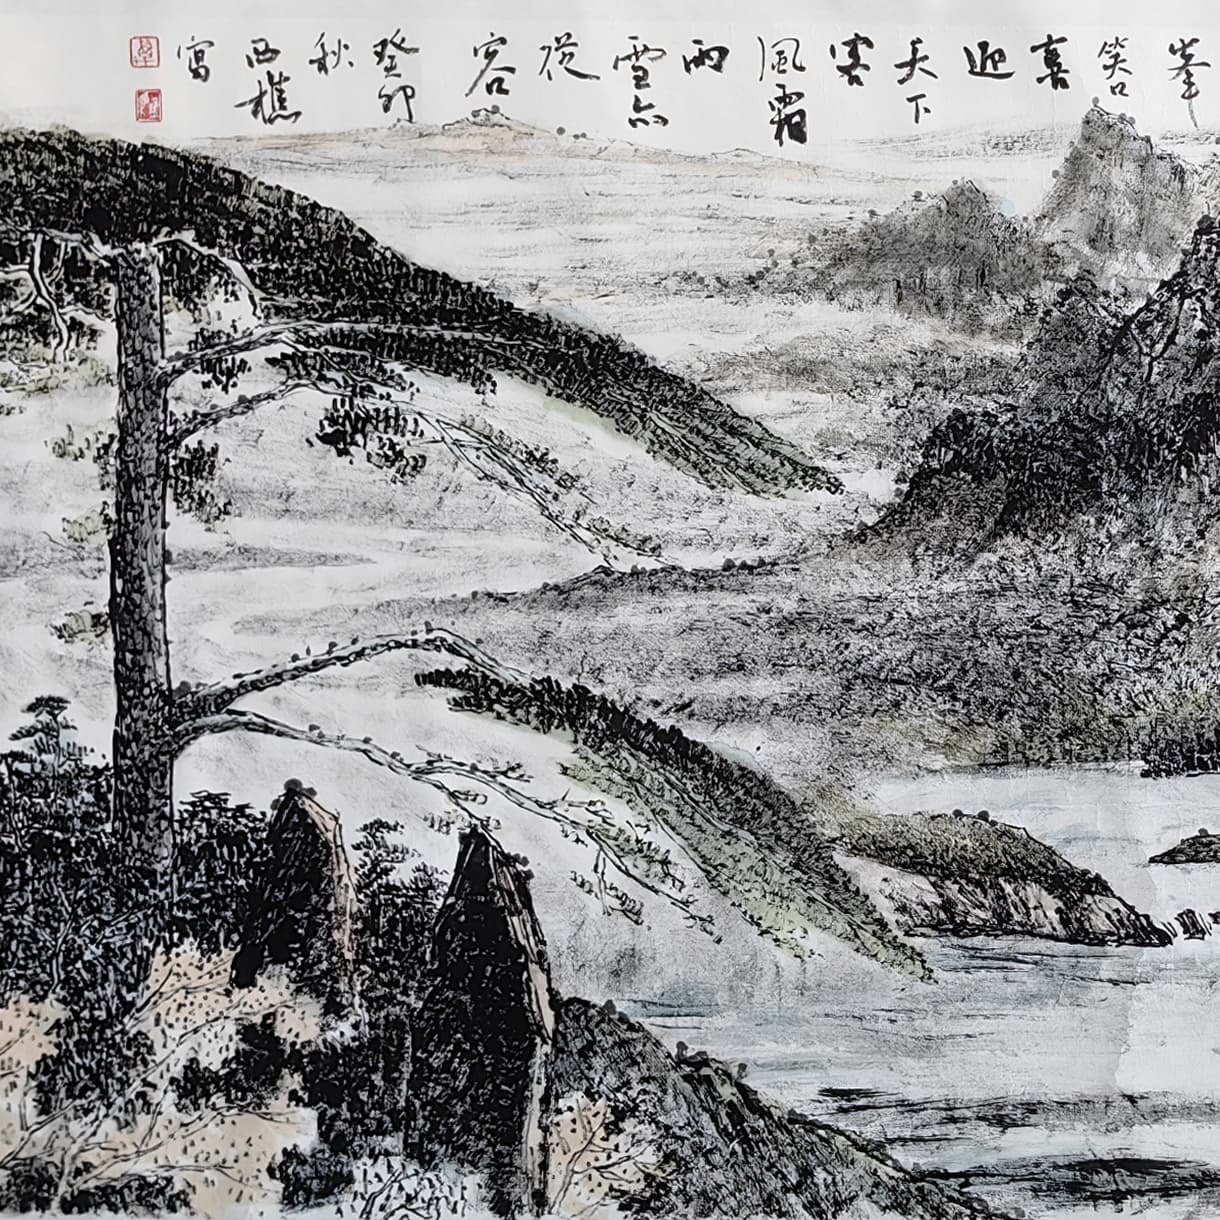 峯
笑口
喜
迎
天下
客
風霜
雨
雪亦
從
容
癸卯
秋
西樵
寫